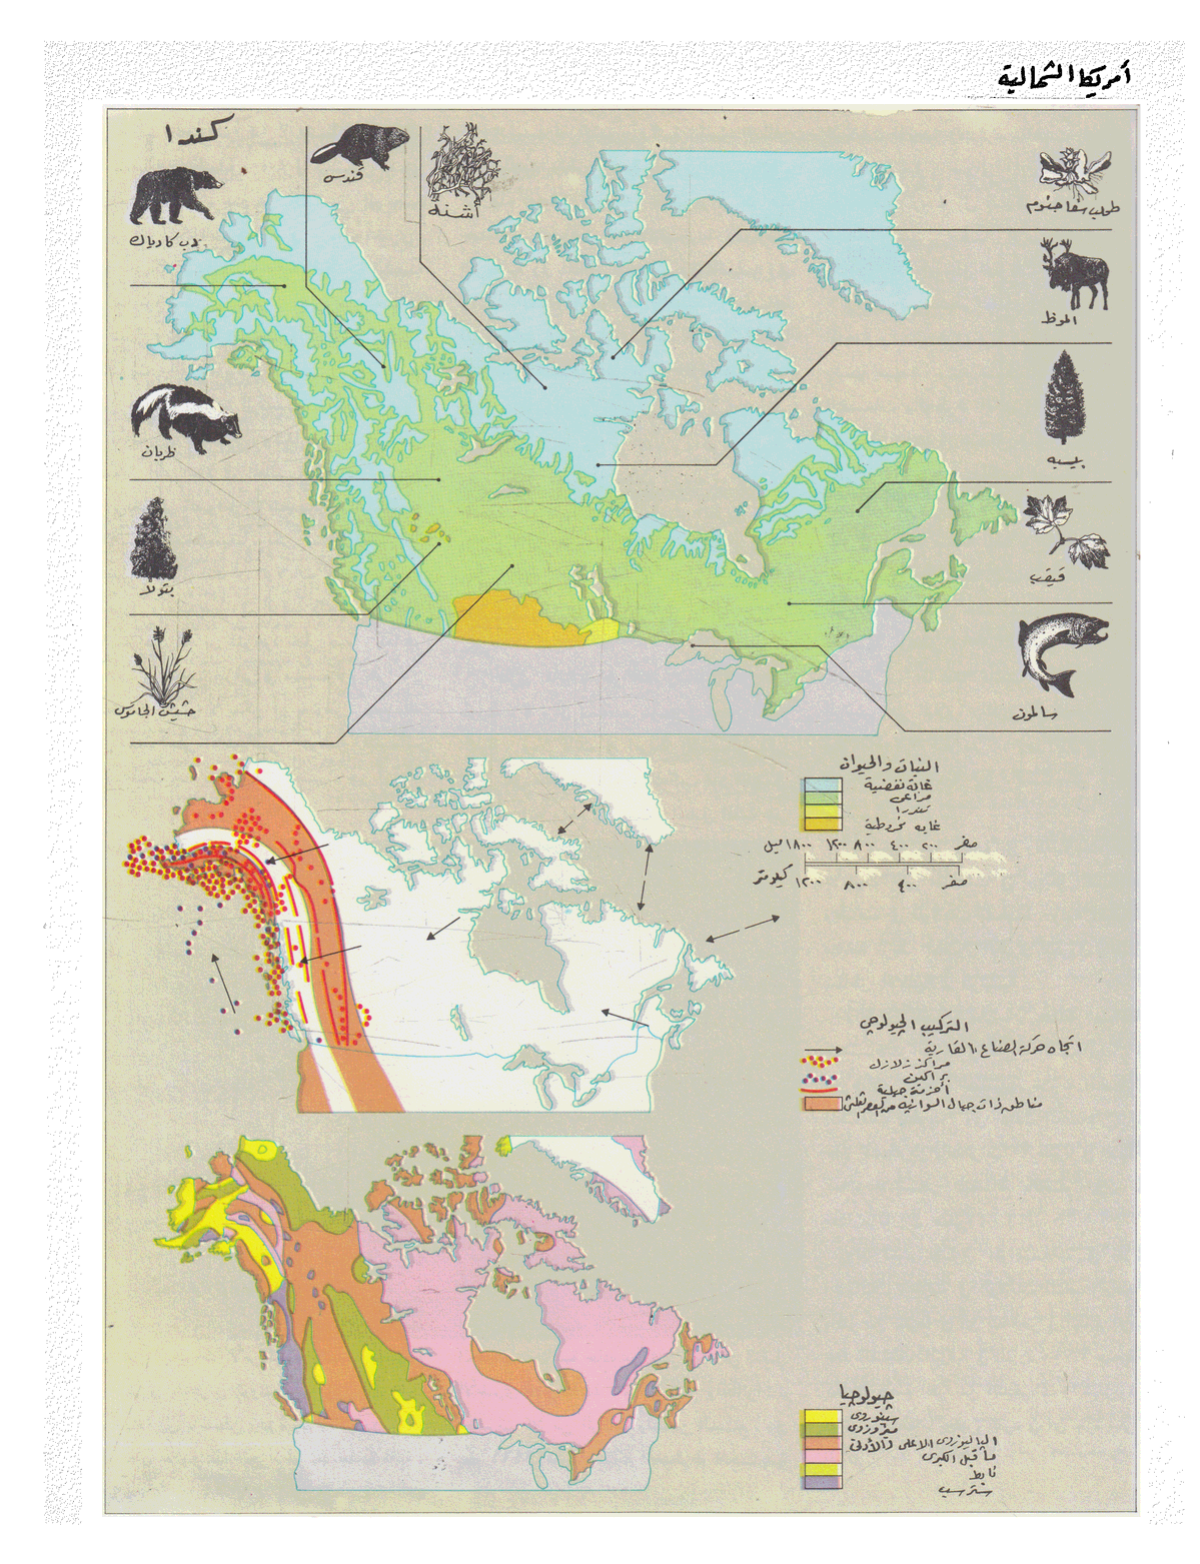 أمريكا الشمالية
كندا
قندس
أشنة
دب كادياك
الموظ
ظربان
بيسيه
بتولا
قيقب
حشيش الجاموس
سالمون
النبات والحيوان
غابة نفضية
مراعي
تندرا
غابه مخروطية
صفر ٢٠٠ ٤٠٠ ٨٠٠ ١٢٠٠ ١٨٠٠ ميل
صفر ٤٠٠ ٨٠٠ ١٢٠٠ كيلومتر
التركيب الجيولوجي
اتجاه حركة القارية
مراكز زلازل
براكين
أحزمة جبلية
مناطق ذات جبال
جيولوجيا
سينوزوى
ميزوزوى
الباليوزوى الاعلى والأدنى
ما قبل الكمبرى